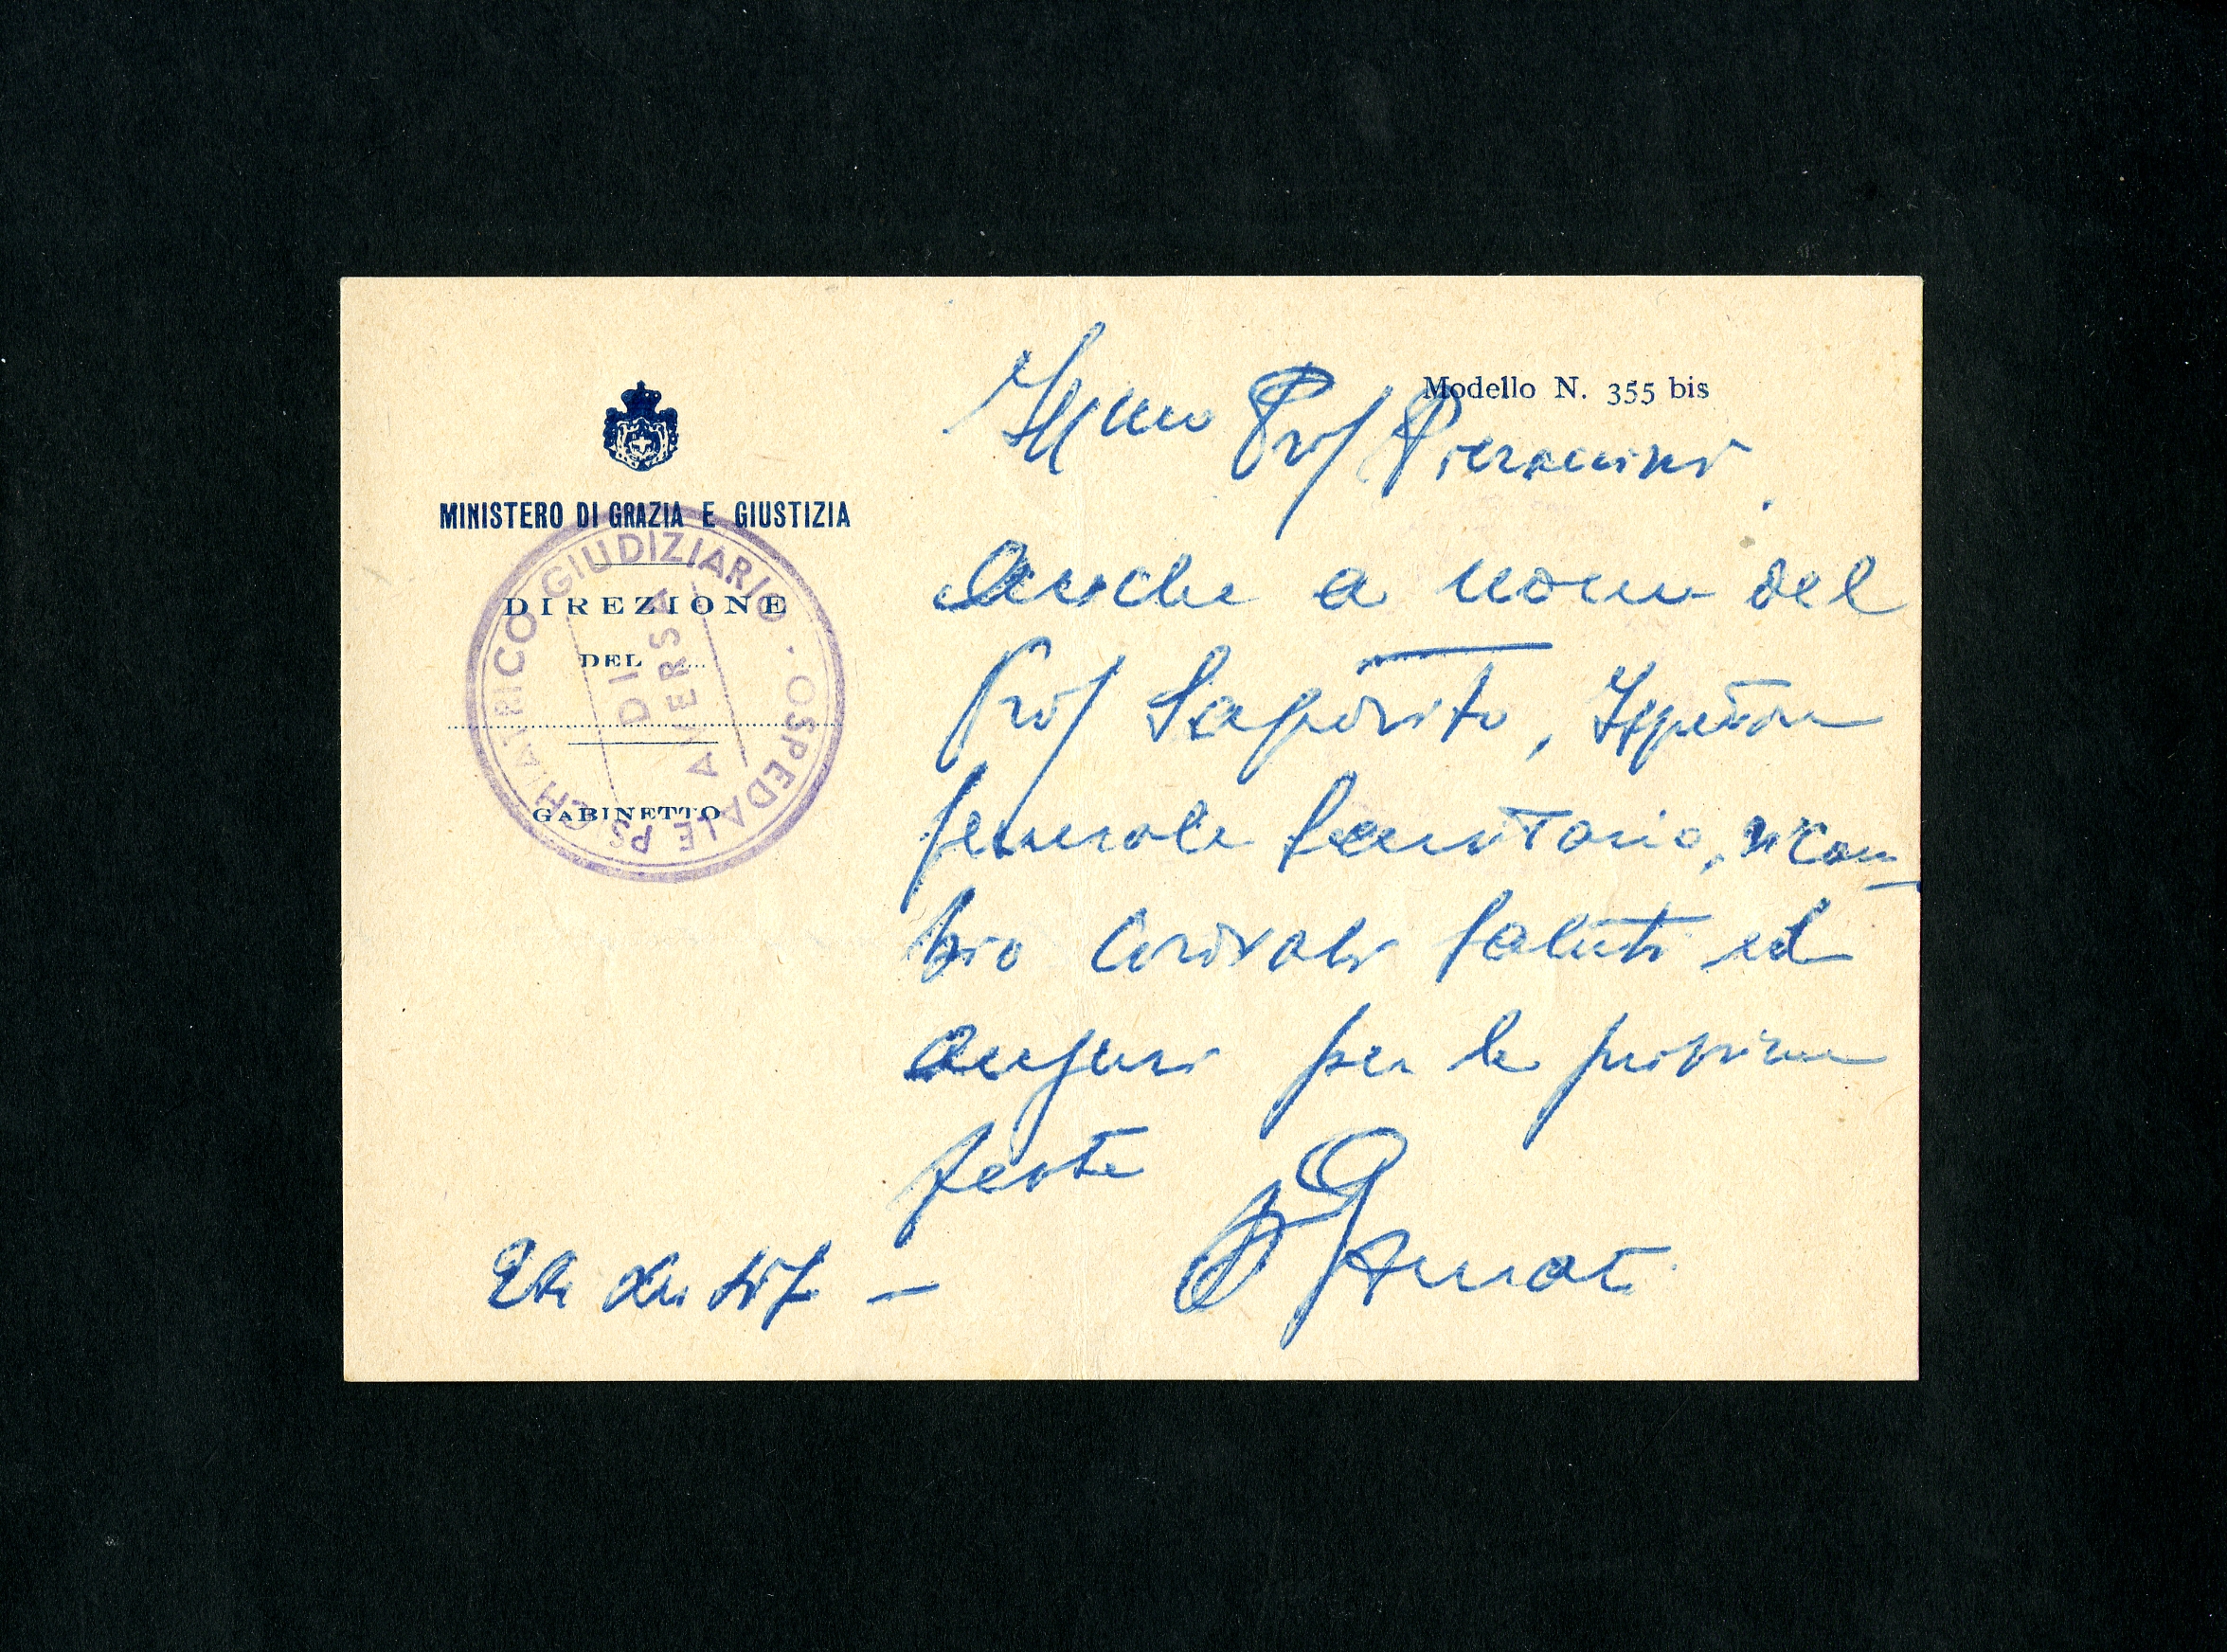 Modello N. 355 bis
MINISTERO DI GRAZIA E GIUSTIZIA
DIREZIONE
DEL
GABINETTO
OSPEDALE PSICHIATRICO GIUDIZIARIO
DI
AVERSA
Ill/mo Prof Pieraccini
Anche a nome del
Prof Saporito, Ispettore
Generale Sanitario, ricam
bio cordiali saluti ed
auguri per le prossime
feste
Amati